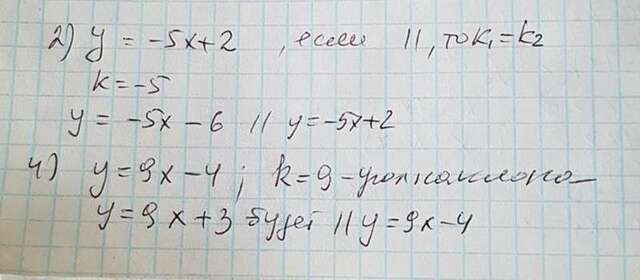 2) y = -5x+2 , если ||, то k₁=k₂
k=-5
y = -5x - 6 || y=-5x+2
4) y=9x-4; k=9-угол наклона
y=9x+3 будет || y=9x-4